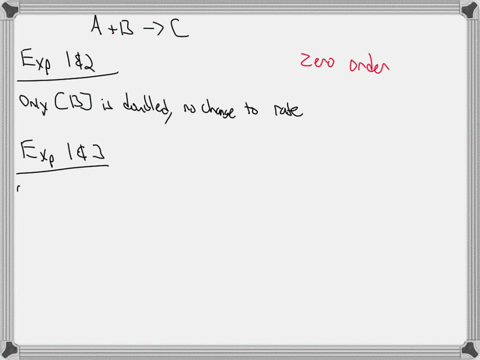 A + B → C
Exp 1&2
zero order
only [B] is doubled, no change to rate
Exp 1&3